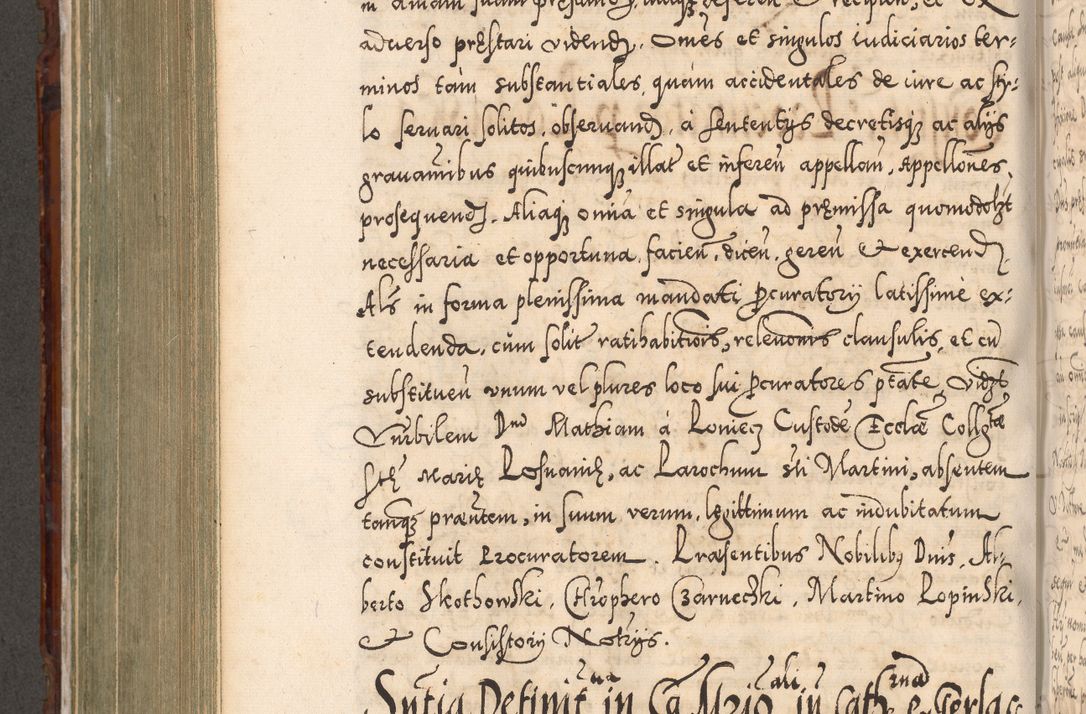 adverso pręstari videnđ. Omēs et singulos iudiciarios ter=
minos tam substantiales, quam accidentales de iure ac sty=
lo servari solitos, observanđ, á sententijs decretisqꝫ ac alijs
gravaminibus quibuscunqꝫ illať et infereñ appellañ, Appellones,
prosequenđ. Aliaqꝫ omnia et singula ad pręmissa quomodolt
necessaria et opportuna, facień, diceñ, gereñ & exercenđ.
Als in forma plenissima mandati Pcuratorij latissime ex=
tendenda, cum soliť ratihabitiōis, relevaōnis clausulis, et cū
substitueñ unum vel plures loco sui Pcuratores ptāte, Vidzt
Vnrbilem Dnū Mathiam á Loniecz Custodē Ecclæ Collgtæ
Stę Marię Posnanię, ac Parochum Sti Martini, absentem
tanqꝫ præntem, in suum verum, legittimum ac indubitatum
constituit Procuratorem. Præsentibus Nobilibꝫ Dnis, Al-
berto Skothowski, Chrophero Czarnecski, Martino Lopinski,
& Consistorij Notrijs.
Snťia Definitíva in Ca Mriōali in